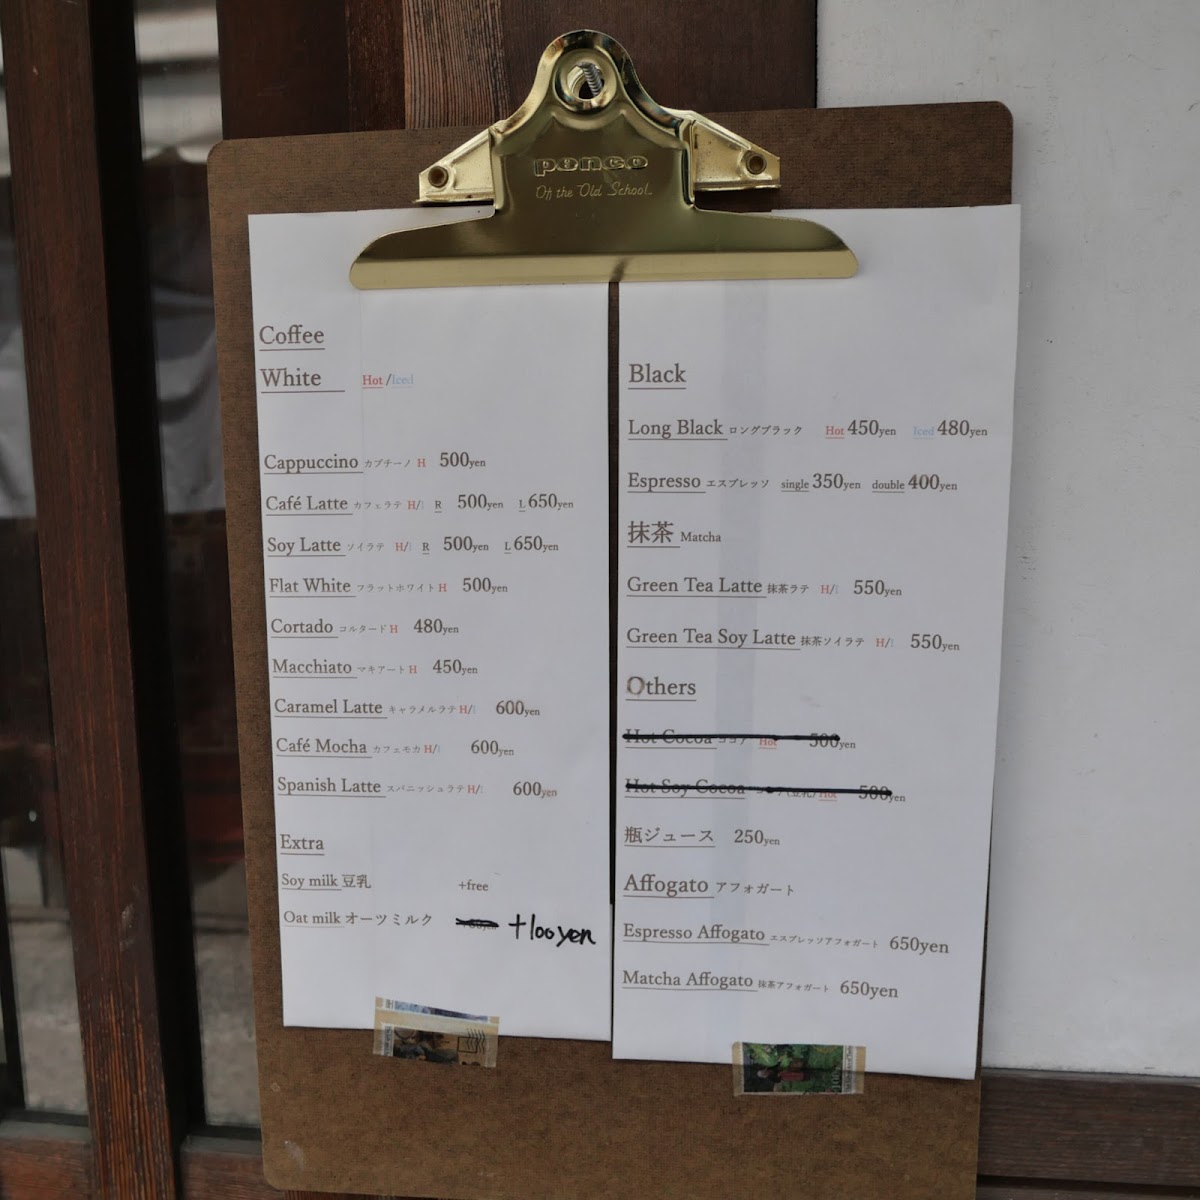 penco
Off the Old School
Coffee
White Hot/Iced
Cappuccino カプチーノ H 500yen
Café Latte カフェラテ H/I R 500yen L 650yen
Soy Latte ソイラテ H/I R 500yen L 650yen
Flat White フラットホワイト H 500yen
Cortado コルタード H 480yen
Macchiato マキアート H 450yen
Caramel Latte キャラメルラテ H/I 600yen
Café Mocha カフェモカ H/I 600yen
Spanish Latte スパニッシュラテ H/I 600yen
Extra
Soy milk 豆乳 +free
Oat milk オーツミルク +100yen
Black
Long Black ロングブラック Hot 450yen Iced 480yen
Espresso エスプレッソ single 350yen double 400yen
抹茶 Matcha
Green Tea Latte 抹茶ラテ H/I 550yen
Green Tea Soy Latte 抹茶ソイラテ H/I 550yen
Others
Hot Cocoa ココア Hot 500yen
Hot Soy Cocoa Hot 500yen
瓶ジュース 250yen
Affogato アフォガート
Espresso Affogato エスプレッソアフォガート 650yen
Matcha Affogato 抹茶アフォガート 650yen